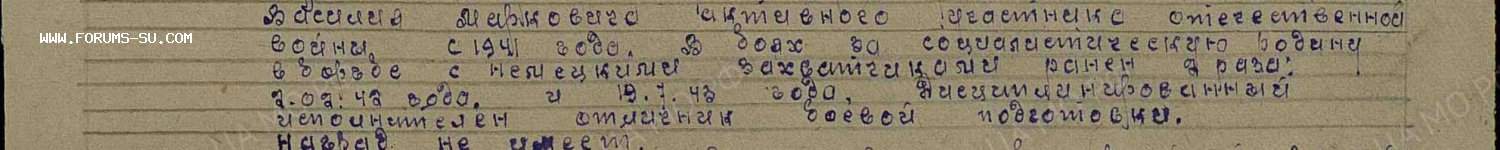 Василия Марковича активного участника отечественной
WWW.FORUMS-SU.COM
войны, с 1941 года. В боях за социалистическую родину
в борьбе с немецкими захватчиками ранен 2 раза:
2.02.43 года. и 19.7.43 года, Дисциплинированный
исполнителен отличник боевой подготовки.
наград не имеет.